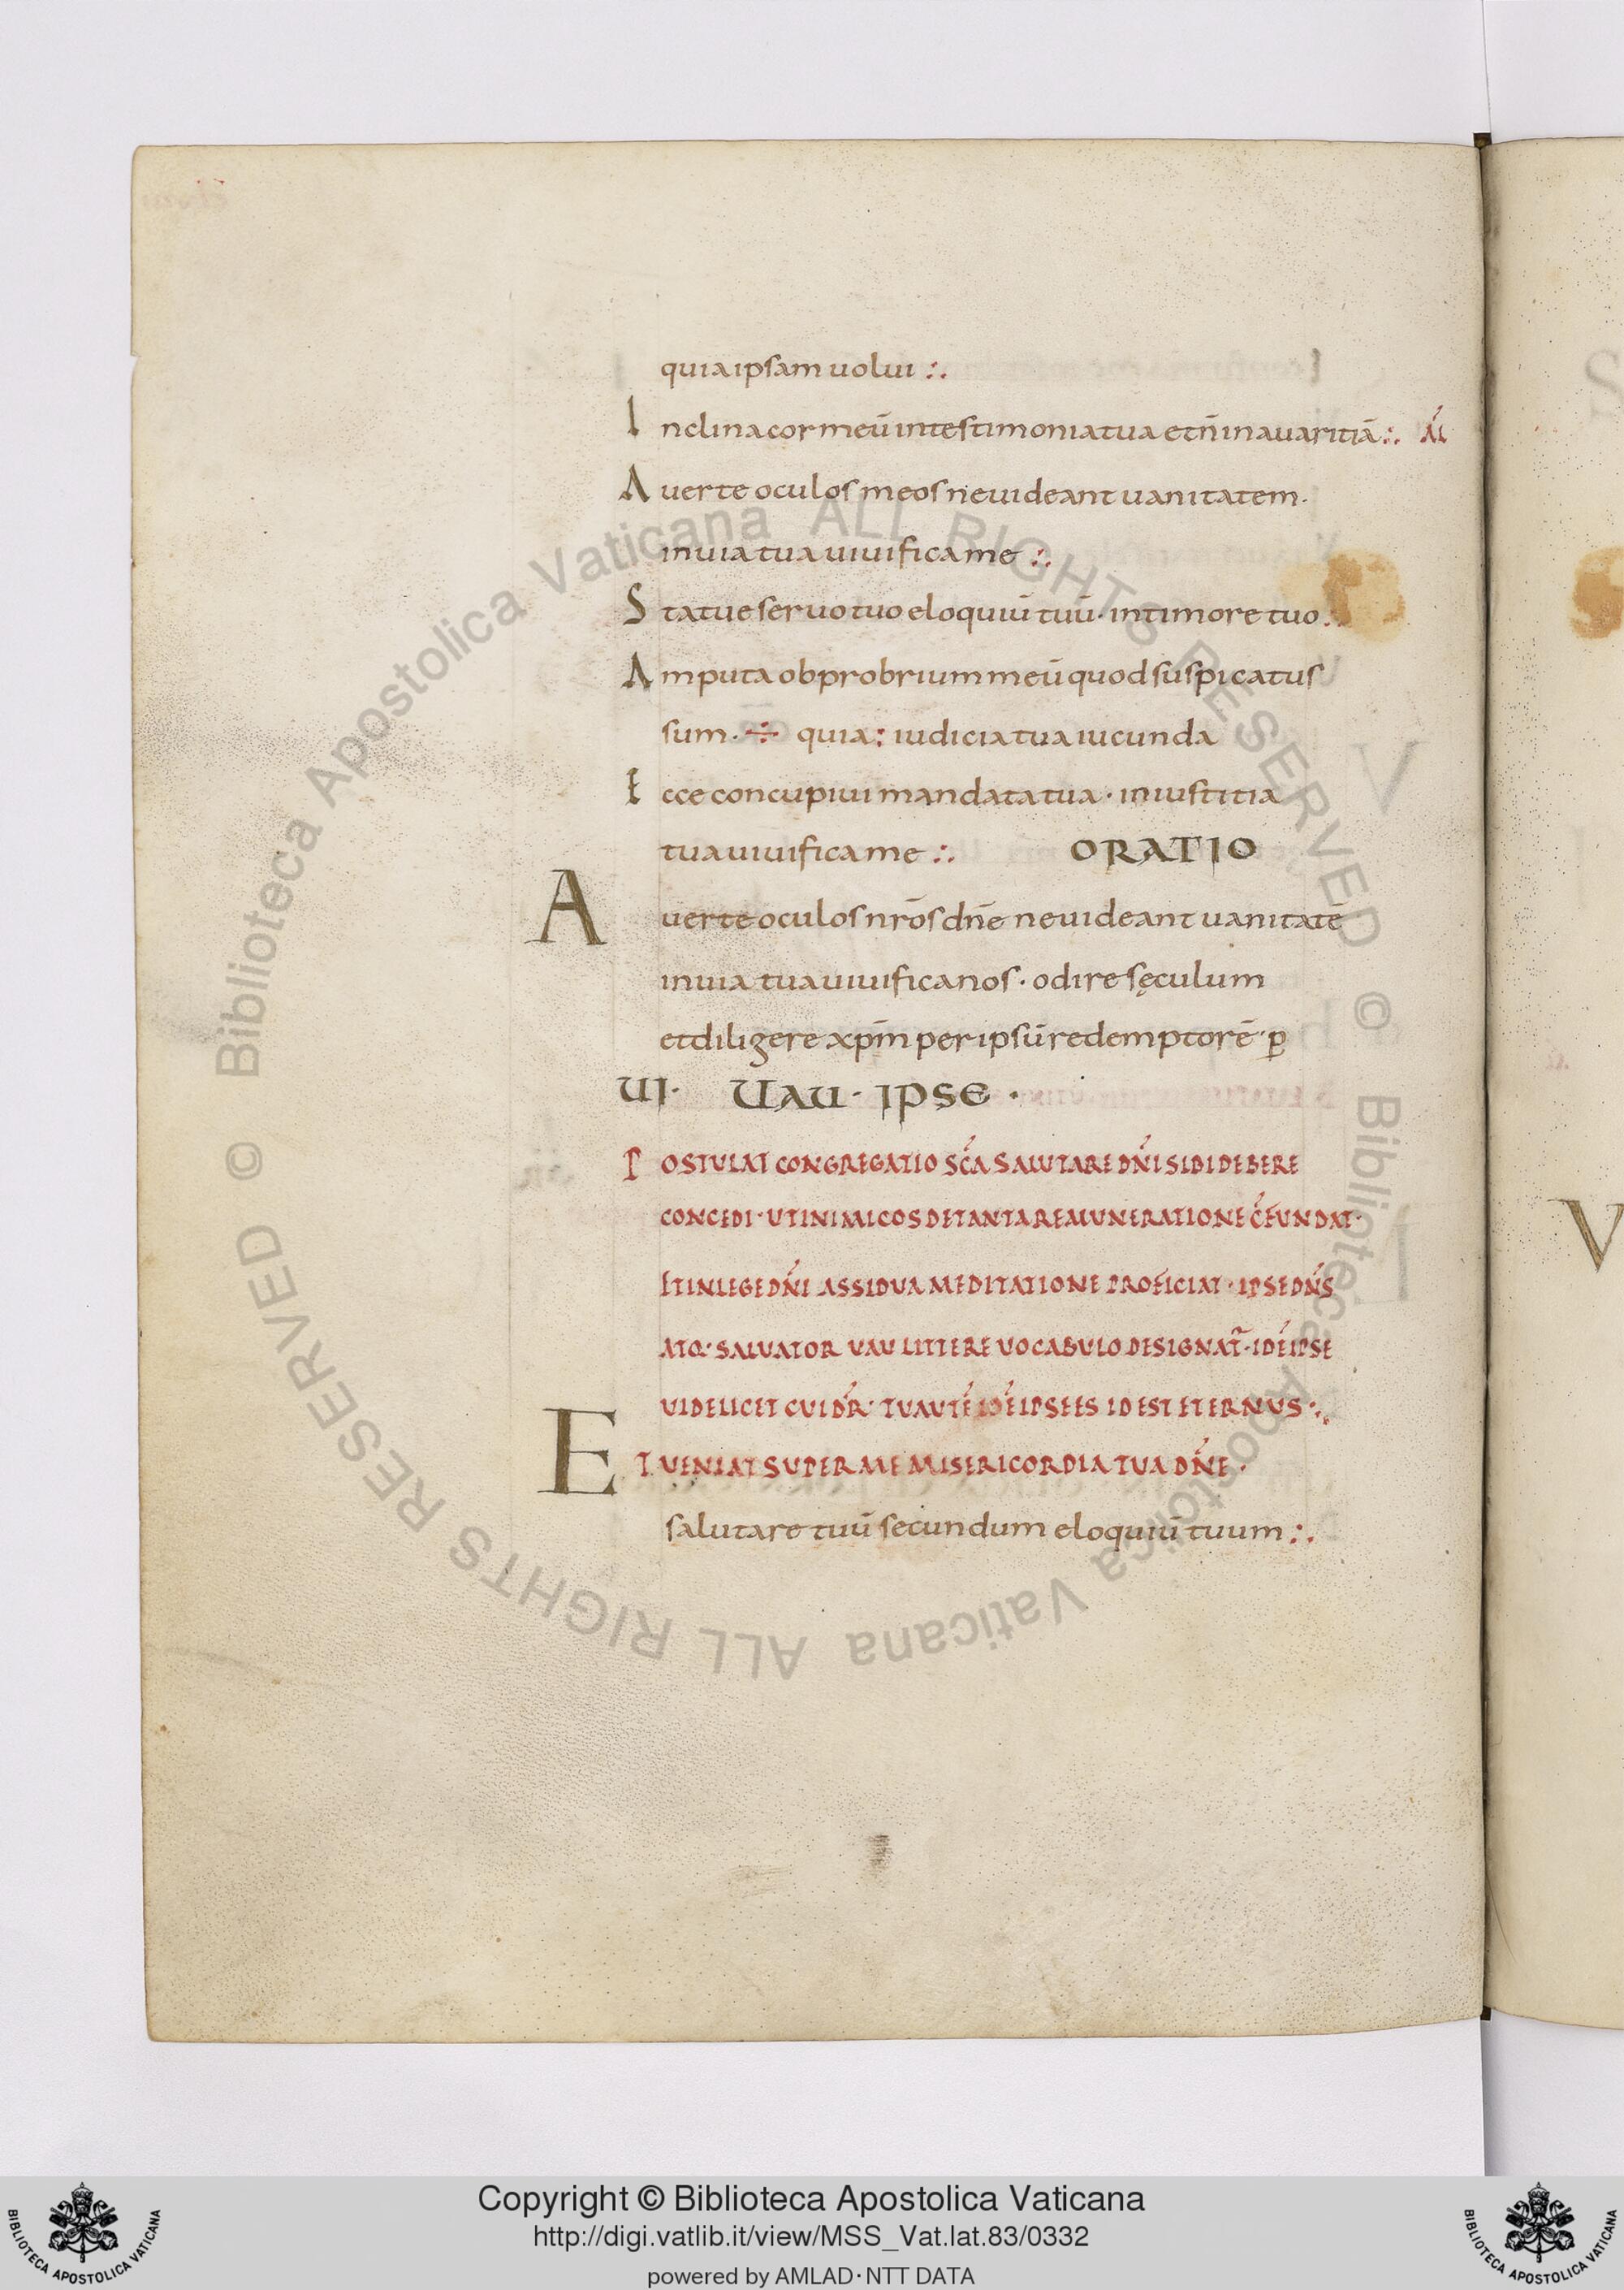 quia ipsam uolui :.
Inclina cor meū in testimonia tua et n̄ in auaritiā :. a̅l
Auerte oculos meos ne uideant uanitatem.
in uia tua uiuifica me :.
Statue seruo tuo eloquiū tuū · in timore tuo :.
Amputa obprobrium meū quod suspicatus
sum · ÷ quia : iudicia tua iucunda
Ecce concupiui mandata tua · in iustitia
tua uiuifica me :. ORATIO
Auerte oculos nr̄os dn̄e ne uideant uanitatē
in uia tua uiuifica nos · odire sęculum
et diligere xp̄m per ipsū redemptorē · ꝑ
UI · UAU · IPSE ·
POSTULAT CONGREGATIO SC̄A SALUTARE DN̄I SIBI DEBERE
CONCEDI · UT INIMICOS DE TANTA REMUNERATIONE C̄FUNDAT ·
ET IN LEGE DN̄I ASSIDUA MEDITATIONE PROFICIAT · IPSE DN̄S
ATQ· SALVATOR VAU LITTERE UOCABULO DESIGNAT̄ · IDĒ IPSE
UIDELICET CUI DR̄ · TU AUTĒ IDĒ IPSE ES ID EST ETERNUS :.
ET UENIAT SUPER ME MISERICORDIA TUA DN̄E ·
salutare tuū secundum eloquiū tuum :.
© Biblioteca Apostolica Vaticana ALL RIGHTS RESERVED
© Biblioteca Apostolica Vaticana ALL RIGHTS RESERVED
V
Copyright © Biblioteca Apostolica Vaticana
http://digi.vatlib.it/view/MSS_Vat.lat.83/0332
powered by AMLAD·NTT DATA
BIBLIOTECA APOSTOLICA VATICANA
BIBLIOTECA APOSTOLICA VATICANA